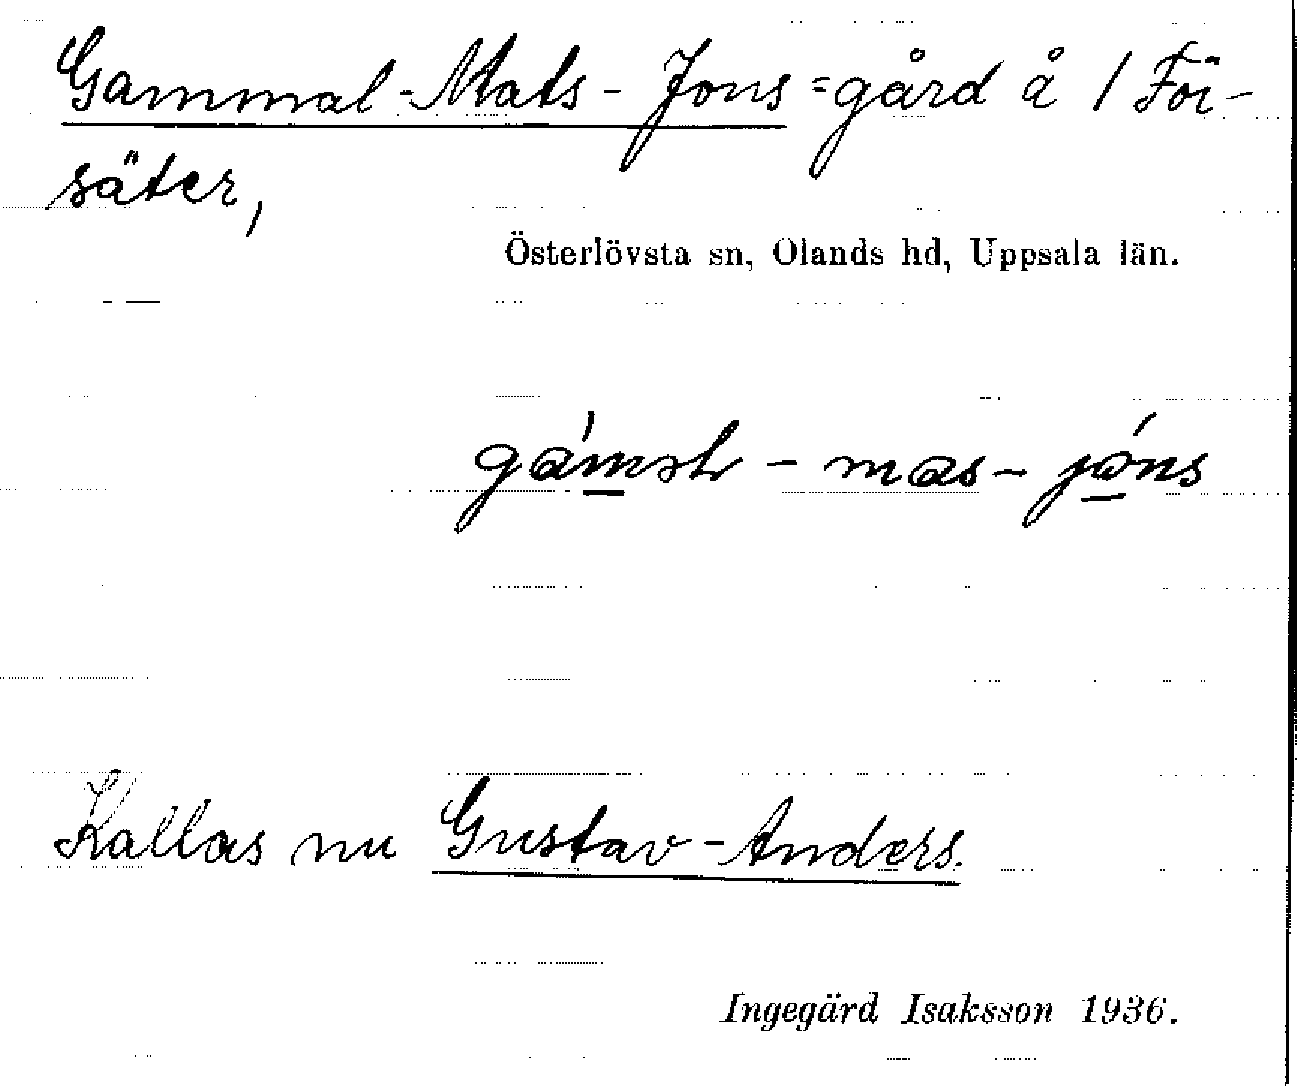 Gammal-Mats-Jons=gård å 1 För-
säter,
Österlövsta sn, Olands hd, Uppsala län.
gáməl-mas-jóns
Kallas nu Gustav-Anders.
Ingegärd Isaksson 1936.